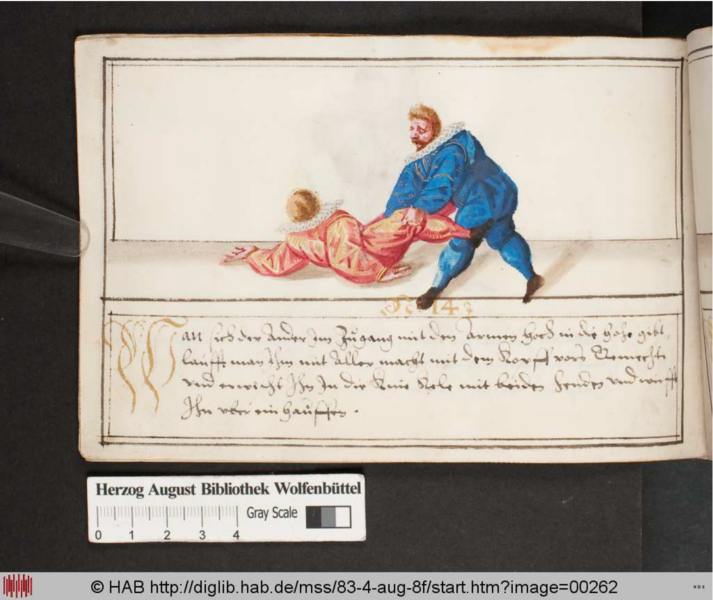 No 143
Wan sich der Ander Im Zugang mit den Armen hoch in die hohe gibt,
laufft man Ihm mit Aller macht mit dem Kopff vors Gemecht
vnd erwischt Ihn In die Knie Kele mit beiden henden vnd wirfft
Ihn vber ein hauffen.
Herzog August Bibliothek Wolfenbüttel
Gray Scale
0 1 2 3 4
© HAB http://diglib.hab.de/mss/83-4-aug-8f/start.htm?image=00262